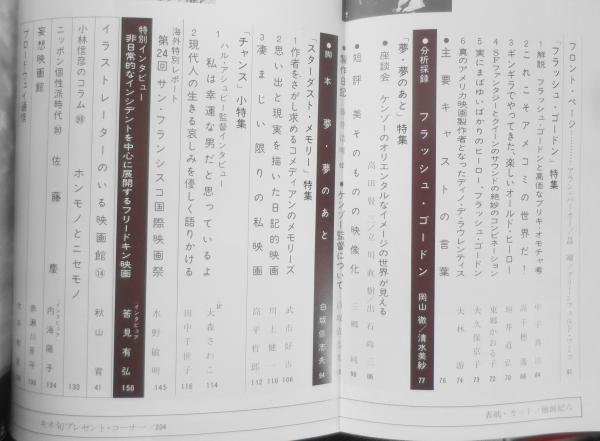 フロント ページ
「フラッシュ・ゴードン」特集
1 解説 フラッシュ・ゴードンと高価なブリキ・オモチャ考
2 これこそアメコミの世界だ! 高千穂遙 68
3 ギンギラでやってきた、楽しいオールド・ヒーロー 垣井道弘 70
4 SFファンタジーとクイーンのサウンドの絶妙のコンビネーション 東郷かおる子 72
5 実にまばゆいばかりのヒーロー、フラッシュ・ゴードン 大久保京子 73
6 真のアメリカ映画製作者となったディノ・デ・ラウレンティス 大林 74
主要キャストの言葉 76
●分析採録 フラッシュ・ゴードン 岡山徹/清水美紗 77
「夢・夢のあと」特集
●座談会 ケンゾーのオリエンタルなイメージの世界が見える
高田賢三/立川直樹/出石尚三 86
●短評 美そのものの映像化 三郷純 90
●製作日記 ●ケンゾー監督について
●脚本 夢・夢のあと 白坂依志夫 94
「スターダスト・メモリー」特集
1 作者をさがし求めるコメディアンのメモリーズ 武市好古 106
2 思い出と現実を描いた日記的映画 川上健一 110
3 凄まじい限りの私映画 高平哲郎 112
「チャンス」小特集
ハル・アシュビー監督インタビュー
1 私は幸運な男だと思っているよ 大森さわこ 114
2 現代人の生きる哀しみを優しく語りかける 田中千世子 116
海外特別レポート
第24回 サン・フランシスコ国際映画祭 水野敏明 145
特別インタビュー
非日常的なインシデントを中心に展開するフリードキン映画 インタビュア 筈見有弘 150
イラストレーターのいる映画館⑭ 秋山育 41
小林信彦のコラム ホンモノとニセモノ 130
ニッポン個性派時代 佐藤慶 インタビュア 内海陽子 134
妄想映画館 赤瀬川原平
ブロードウェイ通信
キネ旬プレゼント・コーナー/204
表紙・カット/檜垣紀六